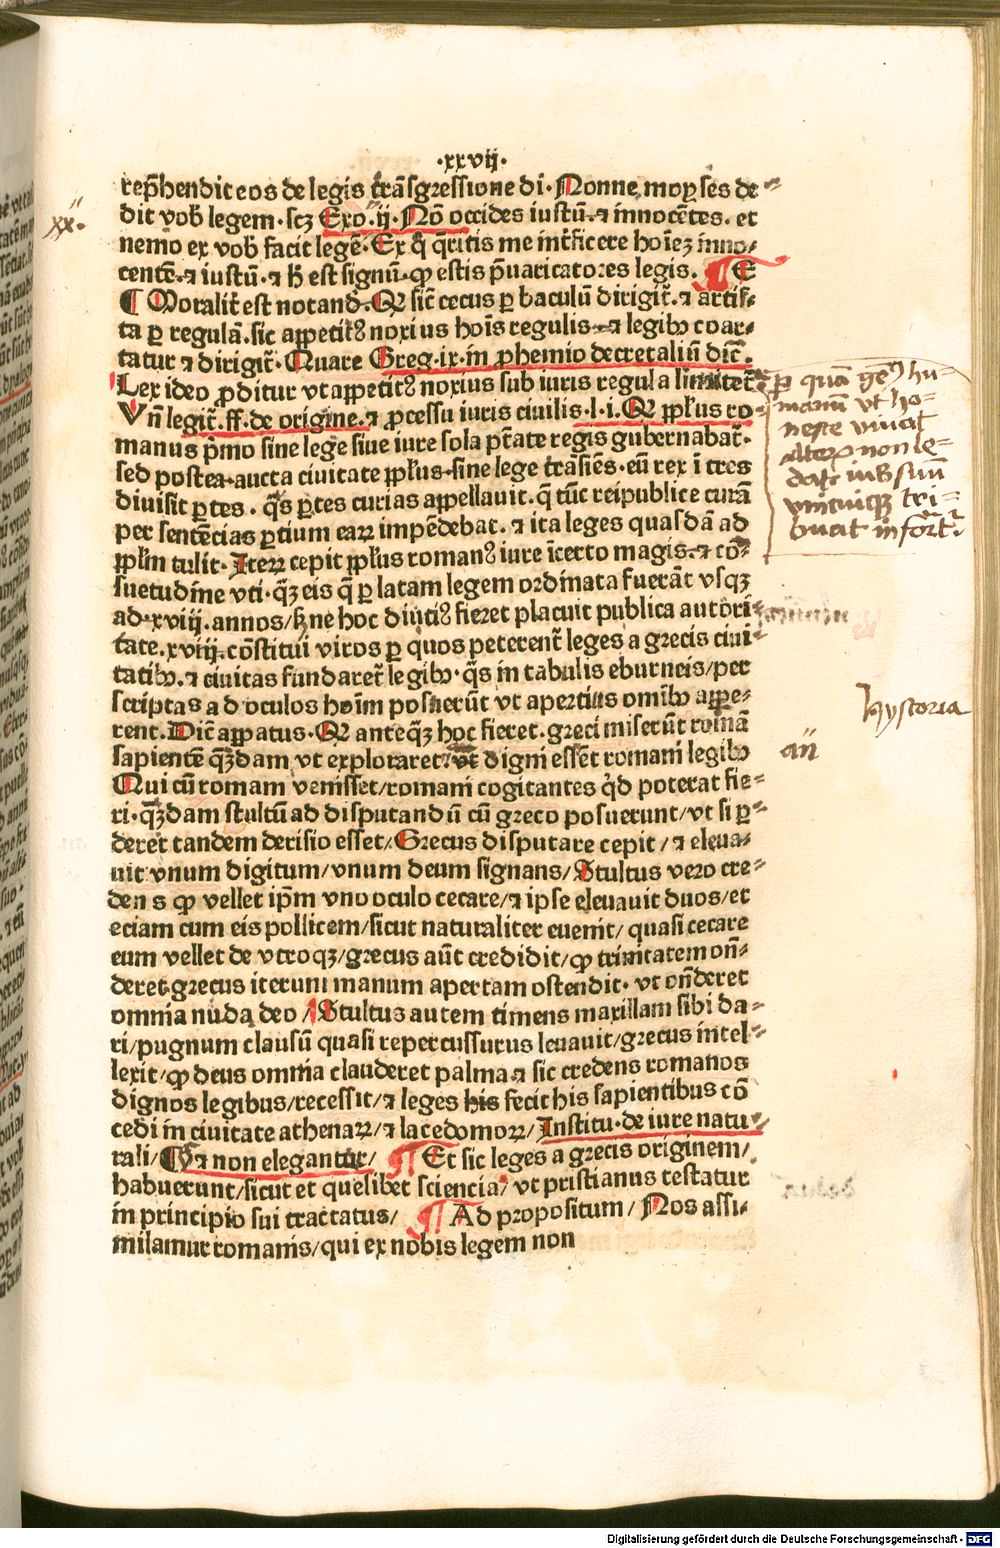 ·xxvij·
rep̄hendit eos de legis trāsgressione di· Nonne moyses de⸗
dit vob̄ legem· scꝫ Exo· ij· Nō occides iustū· ⁊ innocētes· et
xx·
nemo ex vob̄ facit legē· Ex q̄ q̄ritis me int̄ficere hoīeꝫ inno⸗
centē· ⁊ iustū· ⁊ h̄ est signū· ꝙ estis p̄uaricatores legis· ¶ E
¶ Moralit̄ est notand· Q sic̄ cecus ꝑ baculū dirigit̄· ⁊ artis⸗
ta ꝑ regulā· sic appetitꝰ noxius hoīs regulis ⁊ legibꝫ coar⸗
tatur ⁊ dirigit̄· Quare Greg· ix· in prohemio decretaliū dic̄·
Lex ideo ꝓditur vt appetitꝰ noxius sub iuris regula limitet̄
Vn̄ legit̄· ff· de origine· ⁊ ꝓcessu iuris ciuilis· l· i· Q pp̄lus ro⸗
manus p̄mo sine lege siue iure sola p̄tate regis gubernabat̄·
sed postea aucta ciuitate pp̄lus sine lege trāsiēs· eū rex ī tres
diuisit ꝑtes· q̄s ꝑtes curias appellauit· q̄ tūc reipublice curā
per sentēcias ꝑtium eaꝝ impēdebat· ⁊ ita leges quasdā ad
pp̄lm tulit· Iteꝝ cepit pp̄lus romanꝰ iure īcerto magis ⁊ cō⸗
suetudine vti· qꝫ eis q̄ ꝑ latam legem ordinata fuerāt vsqꝫ
ad· xviij· annos/ sꝫ ne hoc diutiꝰ fieret placuit publica autori⸗
tate· xviij· cōstitui viros ꝑ quos peterent̄ leges a grecis ciui⸗
tatibꝫ· ⁊ ciuitas fundaret̄ legibꝫ· q̄s in tabulis eburneis/ per
scriptas ad oculos hoīm posuerūt vt apertius omībꝫ appe⸗
rent· Dic̄ apparatus· Q anteqꝫ hoc fieret· greci miserūt romā
sapientē qꝫdam vt exploraret· vt digni essēt romani legibꝫ
Qui cū romam venisset/ romani cogitantes qd̄ poterat fie⸗
ri· qꝫdam stultū ad disputandū cū greco posuerunt/ vt si ꝑ⸗
deret tandem derisio esset/ Grecus disputare cepit/ ⁊ eleua⸗
uit vnum digitum/ vnum deum signans/ Stultus vero cre⸗
dens ꝙ vellet ip̄m vno oculo cecare/ ⁊ ipse eleuauit duos/ et
eciam cum eis pollicem/ sicut naturaliter euenit/ quasi cecare
eum vellet de vtroqꝫ/ grecus aūt credidit/ ꝙ trinitatem on̄⸗
deret· grecus iterum manum apertam ostendit· vt on̄deret
omnia nuda deo/ Stultus autem timens maxillam sibi da⸗
ri/ pugnum clausū quasi repercussurus leuauit/ grecus intel⸗
lexit/ ꝙ deus omnia clauderet palma ⁊ sic credens romanos
dignos legibus/ recessit/ ⁊ leges his fecit his sapientibus cō
cedi in ciuitate athenaꝝ/ ⁊ lacedomoꝝ/ Institu· de iure natu⸗
rali/ Et non elegantur/ ¶ Et sic leges a grecis originem/
habuerunt/ sicut et quelibet sciencia/ vt pristianus testatur
in principio sui tractatus/ ¶ Ad propositum/ Nos assi⸗
milamur romanis/ qui ex nobis legem non
ꝑ quā geꝰ hu⸗
manū vt ho⸗
neste viuat
alteꝝ non le⸗
dat ius suū
vnicuiqꝫ tri⸗
buat in fort̄·
Hystoria